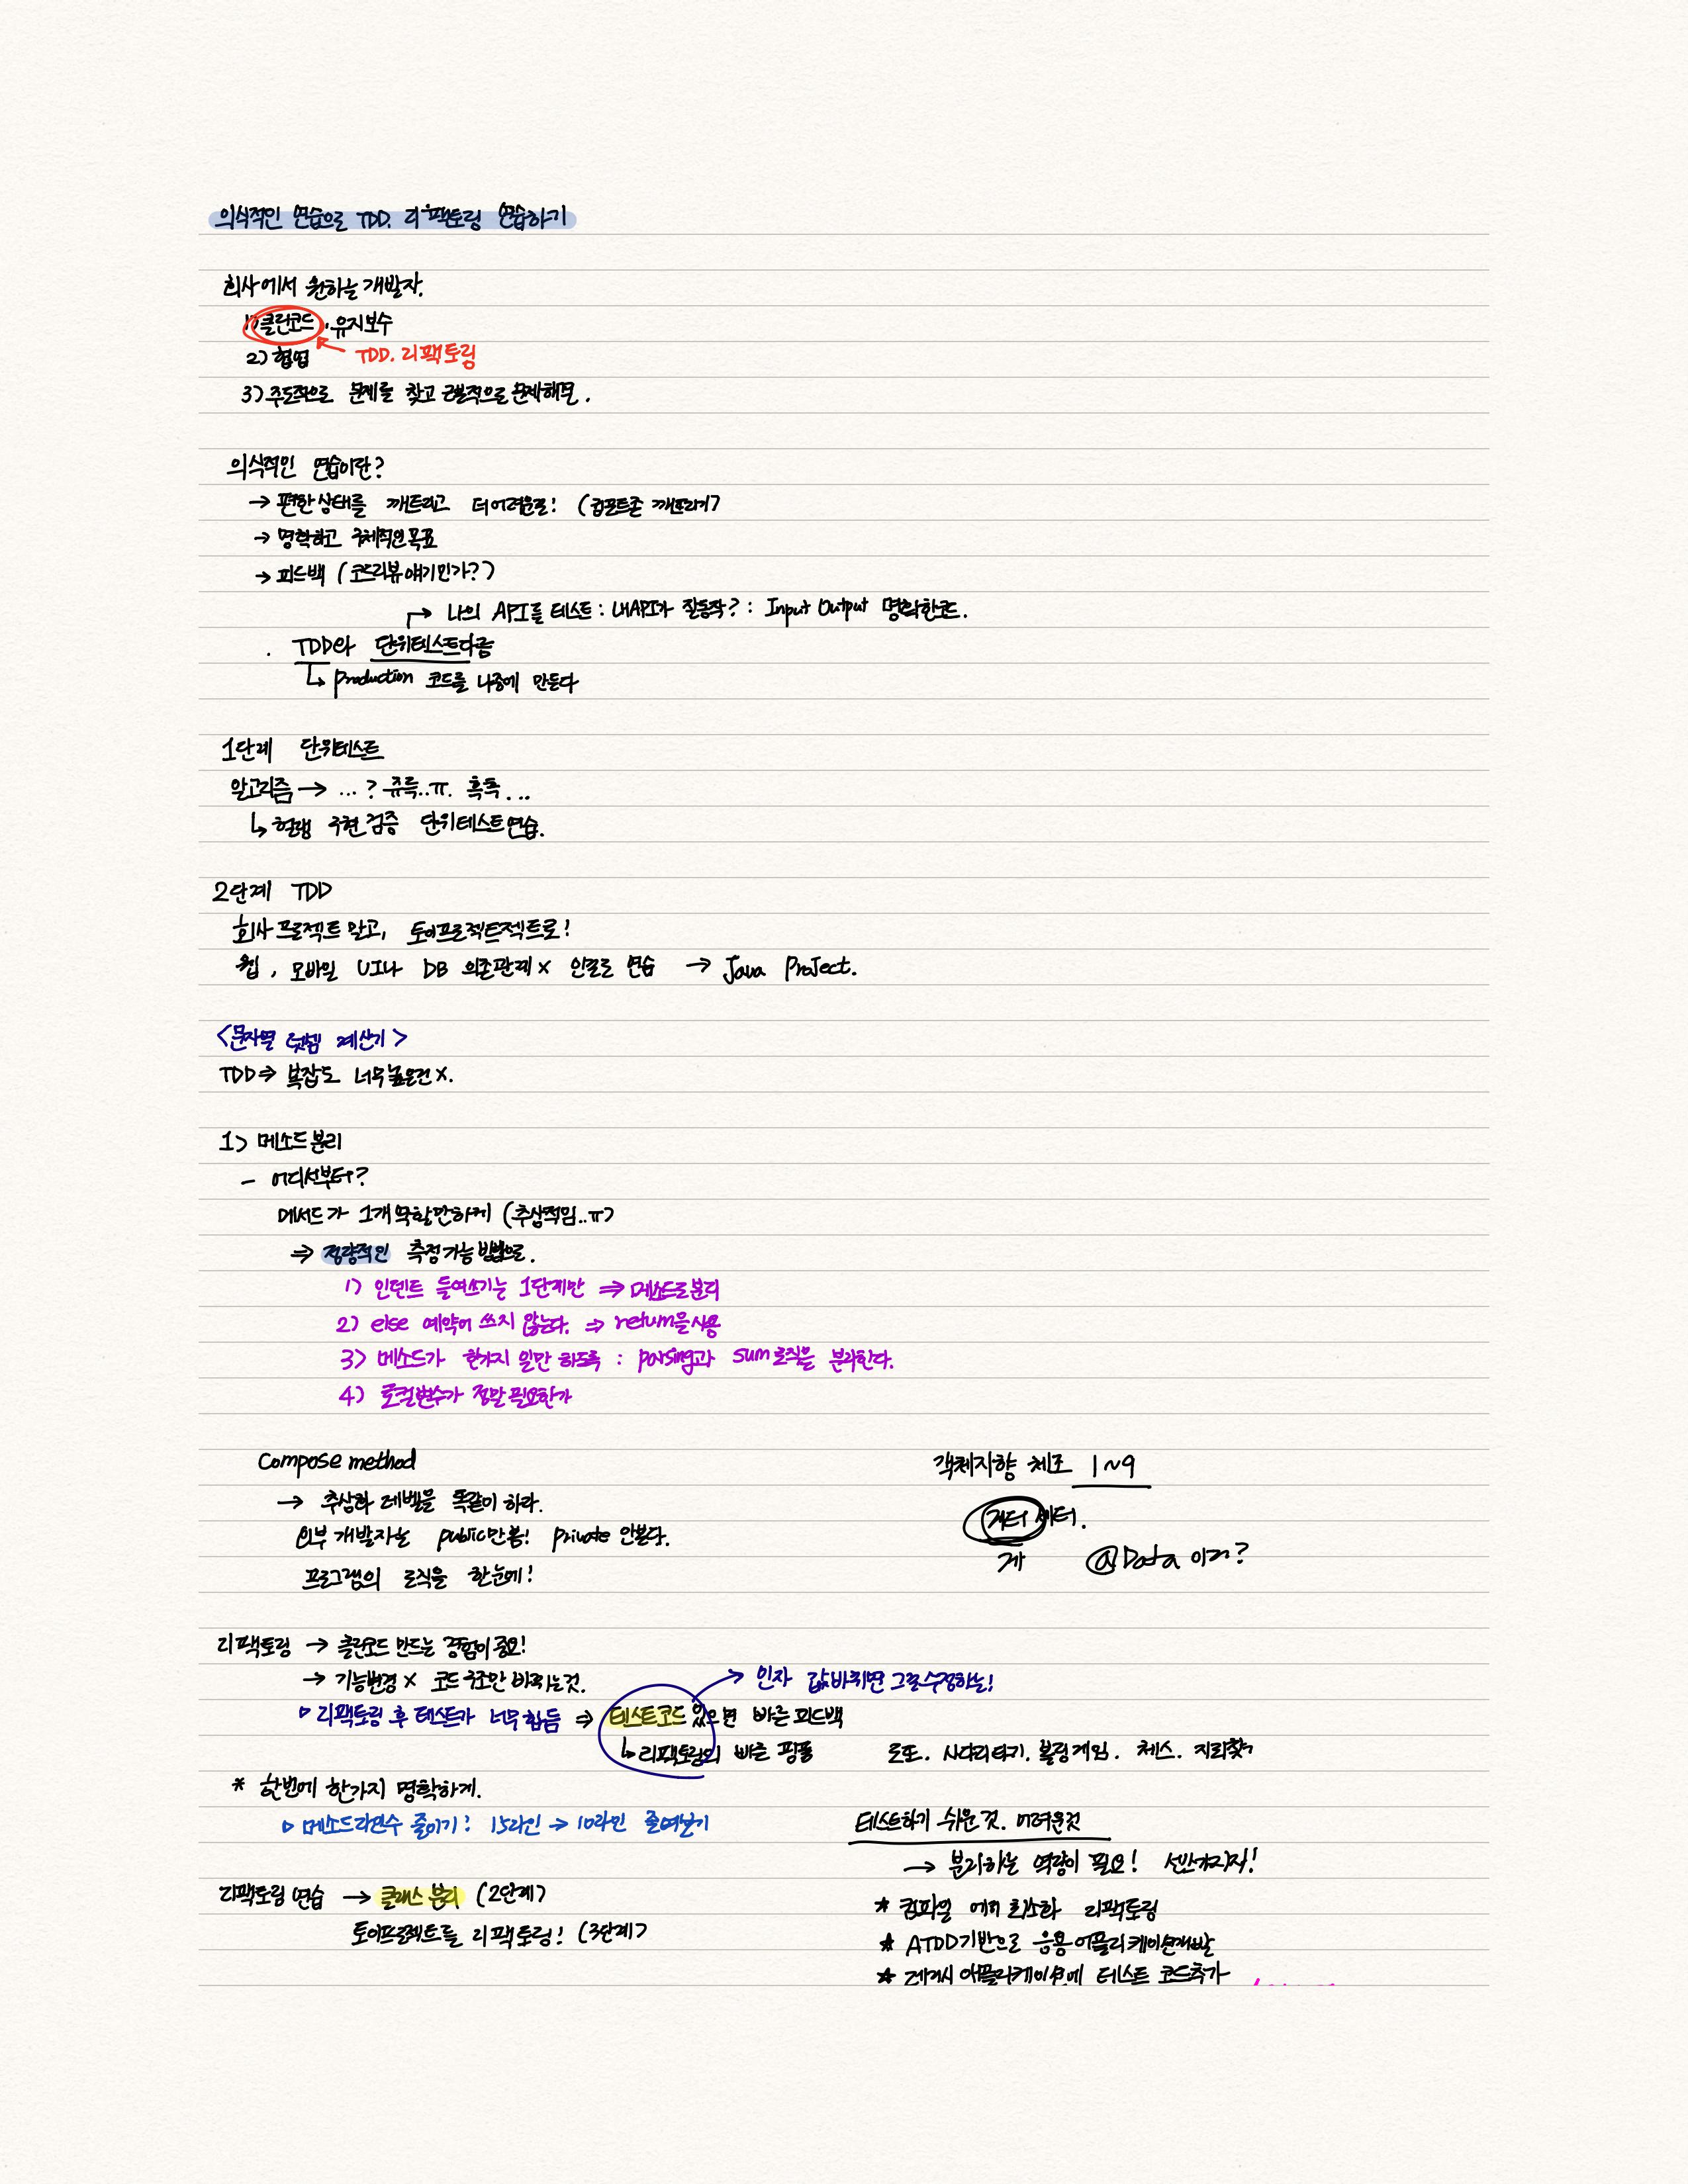 의식적인 연습으로 TDD. 리팩토링 연습하기
회사에서 원하는 개발자.
1) 클린코드, 유지보수
2) 협업 ← TDD. 리팩토링
3) 주도적으로 문제를 찾고 근본적으로 문제해결.
의식적인 연습이란?
→ 편한상태를 깨트리고 더어려운로! (컴포트존 깨뜨리기)
→ 명확하고 구체적인목표
→ 피드백 (코드리뷰얘기인가?)
→ 나의 API를 테스트 : 내API가 잘동작? : Input Output 명확한코드.
. TDD와 단위테스트다름
↳ production 코드를 나중에 만든다
1단계 단위테스트
알고리즘 → ...? 쥬륵..ㅠ. 흑흑...
↳ 구현 검증 단위테스트연습.
2단계 TDD
회사프로젝트 말고, 토이프로젝트젝트로!
웹, 모바일 UI나 DB 의존관계 X 인걸로 연습 → Java Project.
<문자열 덧셈 계산기>
TDD ⇒ 복잡도 너무높은건 X.
1) 메소드분리
- 어디서부터?
메서드가 1개역할만하게 (추상적임..ㅠ)
⇒ 정량적인 측정가능 방법으로.
1) 인덴트 들여쓰기는 1단계만 ⇒ 메소드로분리
2) else 예약어 쓰지 않는다. ⇒ return을사용
3) 메소드가 한가지 일만 하도록 : parsing과 sum로직을 분리한다.
4) 로컬변수가 정말필요한가
Compose method
→ 추상화 레벨을 똑같이 하라.
외부 개발자는 public만봄! private 안본다.
프로그램의 로직을 한눈에!
객체지향 체조 1~9
게터 세터.
게 @Data 이거?
리팩토링 → 클린코드 만드는 경험이 중요!
→ 기능변경 X 코드 구조만 바뀌는것.
→ 인자 값바뀌면 그걸수정하는!
▷ 리팩토링 후 테스트가 너무힘듬 ⇒ 테스트코드 있으면 빠른 피드백
↳ 리팩토링의 빠른 핑퐁
로또. 사다리타기. 볼링게임. 체스. 지뢰찾기
* 한번에 한가지 명확하게.
▷ 메소드라인수 줄이기: 15라인 → 10라인 줄여보기
테스트하기 쉬운것. 어려운것
→ 분리하는 역량이 필요!
리팩토링 연습 → 클래스 분리 (2단계)
토이프로젝트를 리팩토링! (3단계)
* 컴파일 에러 최소화 리팩토링
* ATDD기반으로 응용어플리케이션개발
* 레거시 어플리케이션에 테스트 코드추가